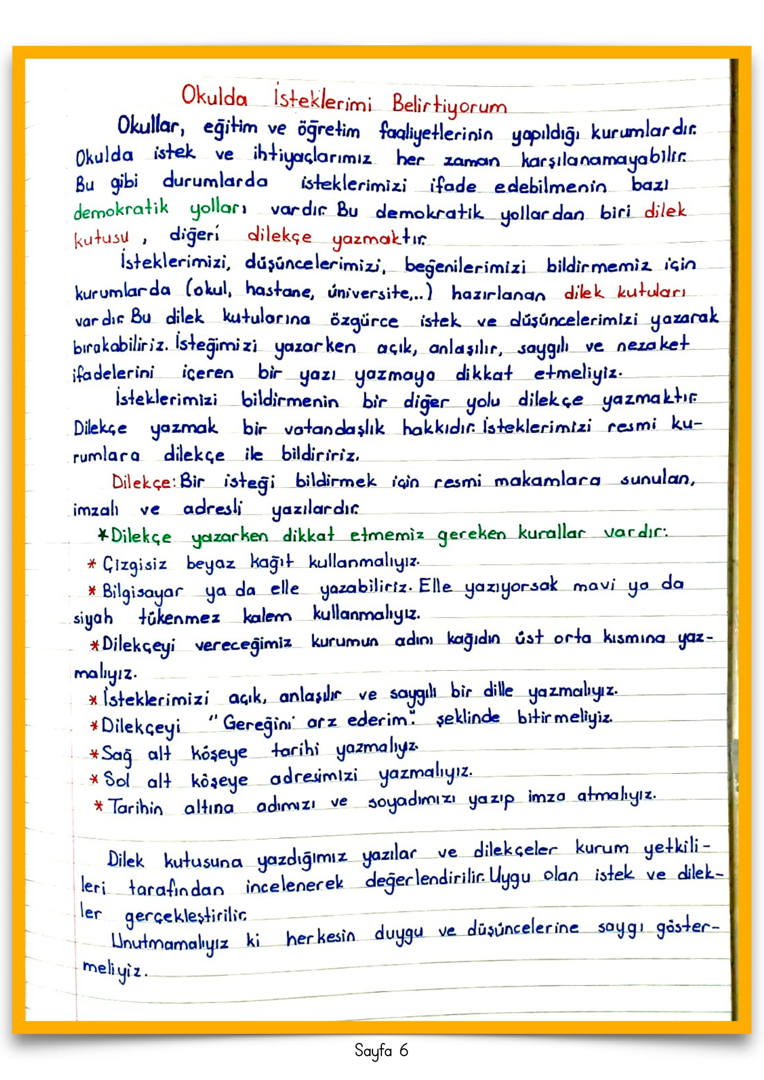 Okulda İsteklerimi Belirtiyorum
Okullar, eğitim ve öğretim faaliyetlerinin yapıldığı kurumlardır.
Okulda istek ve ihtiyaçlarımız her zaman karşılanamayabilir.
Bu gibi durumlarda isteklerimizi ifade edebilmenin bazı
demokratik yolları vardır. Bu demokratik yollardan biri dilek
kutusu, diğeri dilekçe yazmaktır.
İsteklerimizi, düşüncelerimizi, beğenilerimizi bildirmemiz için
kurumlarda (okul, hastane, üniversite,..) hazırlanan dilek kutuları
vardır. Bu dilek kutularına özgürce istek ve düşüncelerimizi yazarak
bırakabiliriz. İsteğimizi yazarken açık, anlaşılır, saygılı ve nezaket
ifadelerini içeren bir yazı yazmaya dikkat etmeliyiz.
İsteklerimizi bildirmenin bir diğer yolu dilekçe yazmaktır.
Dilekçe yazmak bir vatandaşlık hakkıdır. İsteklerimizi resmi ku-
rumlara dilekçe ile bildiririz.
Dilekçe: Bir isteği bildirmek için resmi makamlara sunulan,
imzalı ve adresli yazılardır.
*Dilekçe yazarken dikkat etmemiz gereken kurallar vardır:
* Çizgisiz beyaz kağıt kullanmalıyız.
* Bilgisayar ya da elle yazabiliriz. Elle yazıyorsak mavi ya da
siyah tükenmez kalem kullanmalıyız.
*Dilekçeyi vereceğimiz kurumun adını kağıdın üst orta kısmına yaz-
malıyız.
* İsteklerimizi açık, anlaşılır ve saygılı bir dille yazmalıyız.
*Dilekçeyi "Gereğini arz ederim." şeklinde bitirmeliyiz.
*Sağ alt köşeye tarihi yazmalıyz.
* Sol alt köşeye adresimizi yazmalıyız.
* Tarihin altına adımızı ve soyadımızı yazıp imza atmalıyız.
Dilek kutusuna yazdığımız yazılar ve dilekçeler kurum yetkili-
leri tarafından incelenerek değerlendirilir. Uygu olan istek ve dilek-
ler gerçekleştirilir.
Unutmamalıyız ki herkesin duygu ve düşüncelerine saygı göster-
meliyiz.
Sayfa 6